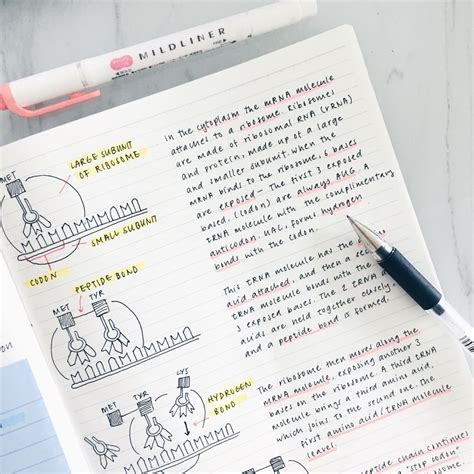 MILDLINER
In the cytoplasm the mRNA molecule
attaches to a ribosome. Ribosomes
are made of ribosomal RNA (rRNA)
and protein, made up of a large
and smaller subunit. When the
mRNA binds to the ribosome, 6 bases
are exposed - The first 3 exposed
bases (codon) are always AUG. A
tRNA molecule with the complimentary
anticodon, UAC, forms hydrogen
bonds with the codon.
LARGE SUBUNIT
OF RIBOSOME
MET
SMALL SUBUNIT
CODON
PEPTIDE BOND
MET TYR
This tRNA molecule has the
acid attached, and then a
tRNA molecule bonds with the
3 exposed bases. The 2 tRNA
acids are held together closely
and a peptide bond is formed.
The ribosome then moves along the
mRNA molecule, exposing another 3
bases on the ribosome. A third tRNA
molecule brings a third amino acid,
which joins to the second one. The
first amino acid/tRNA molecule
leaves.
MET TYR LYS
HYDROGEN
BOND
peptide chain continues
"stop codon"